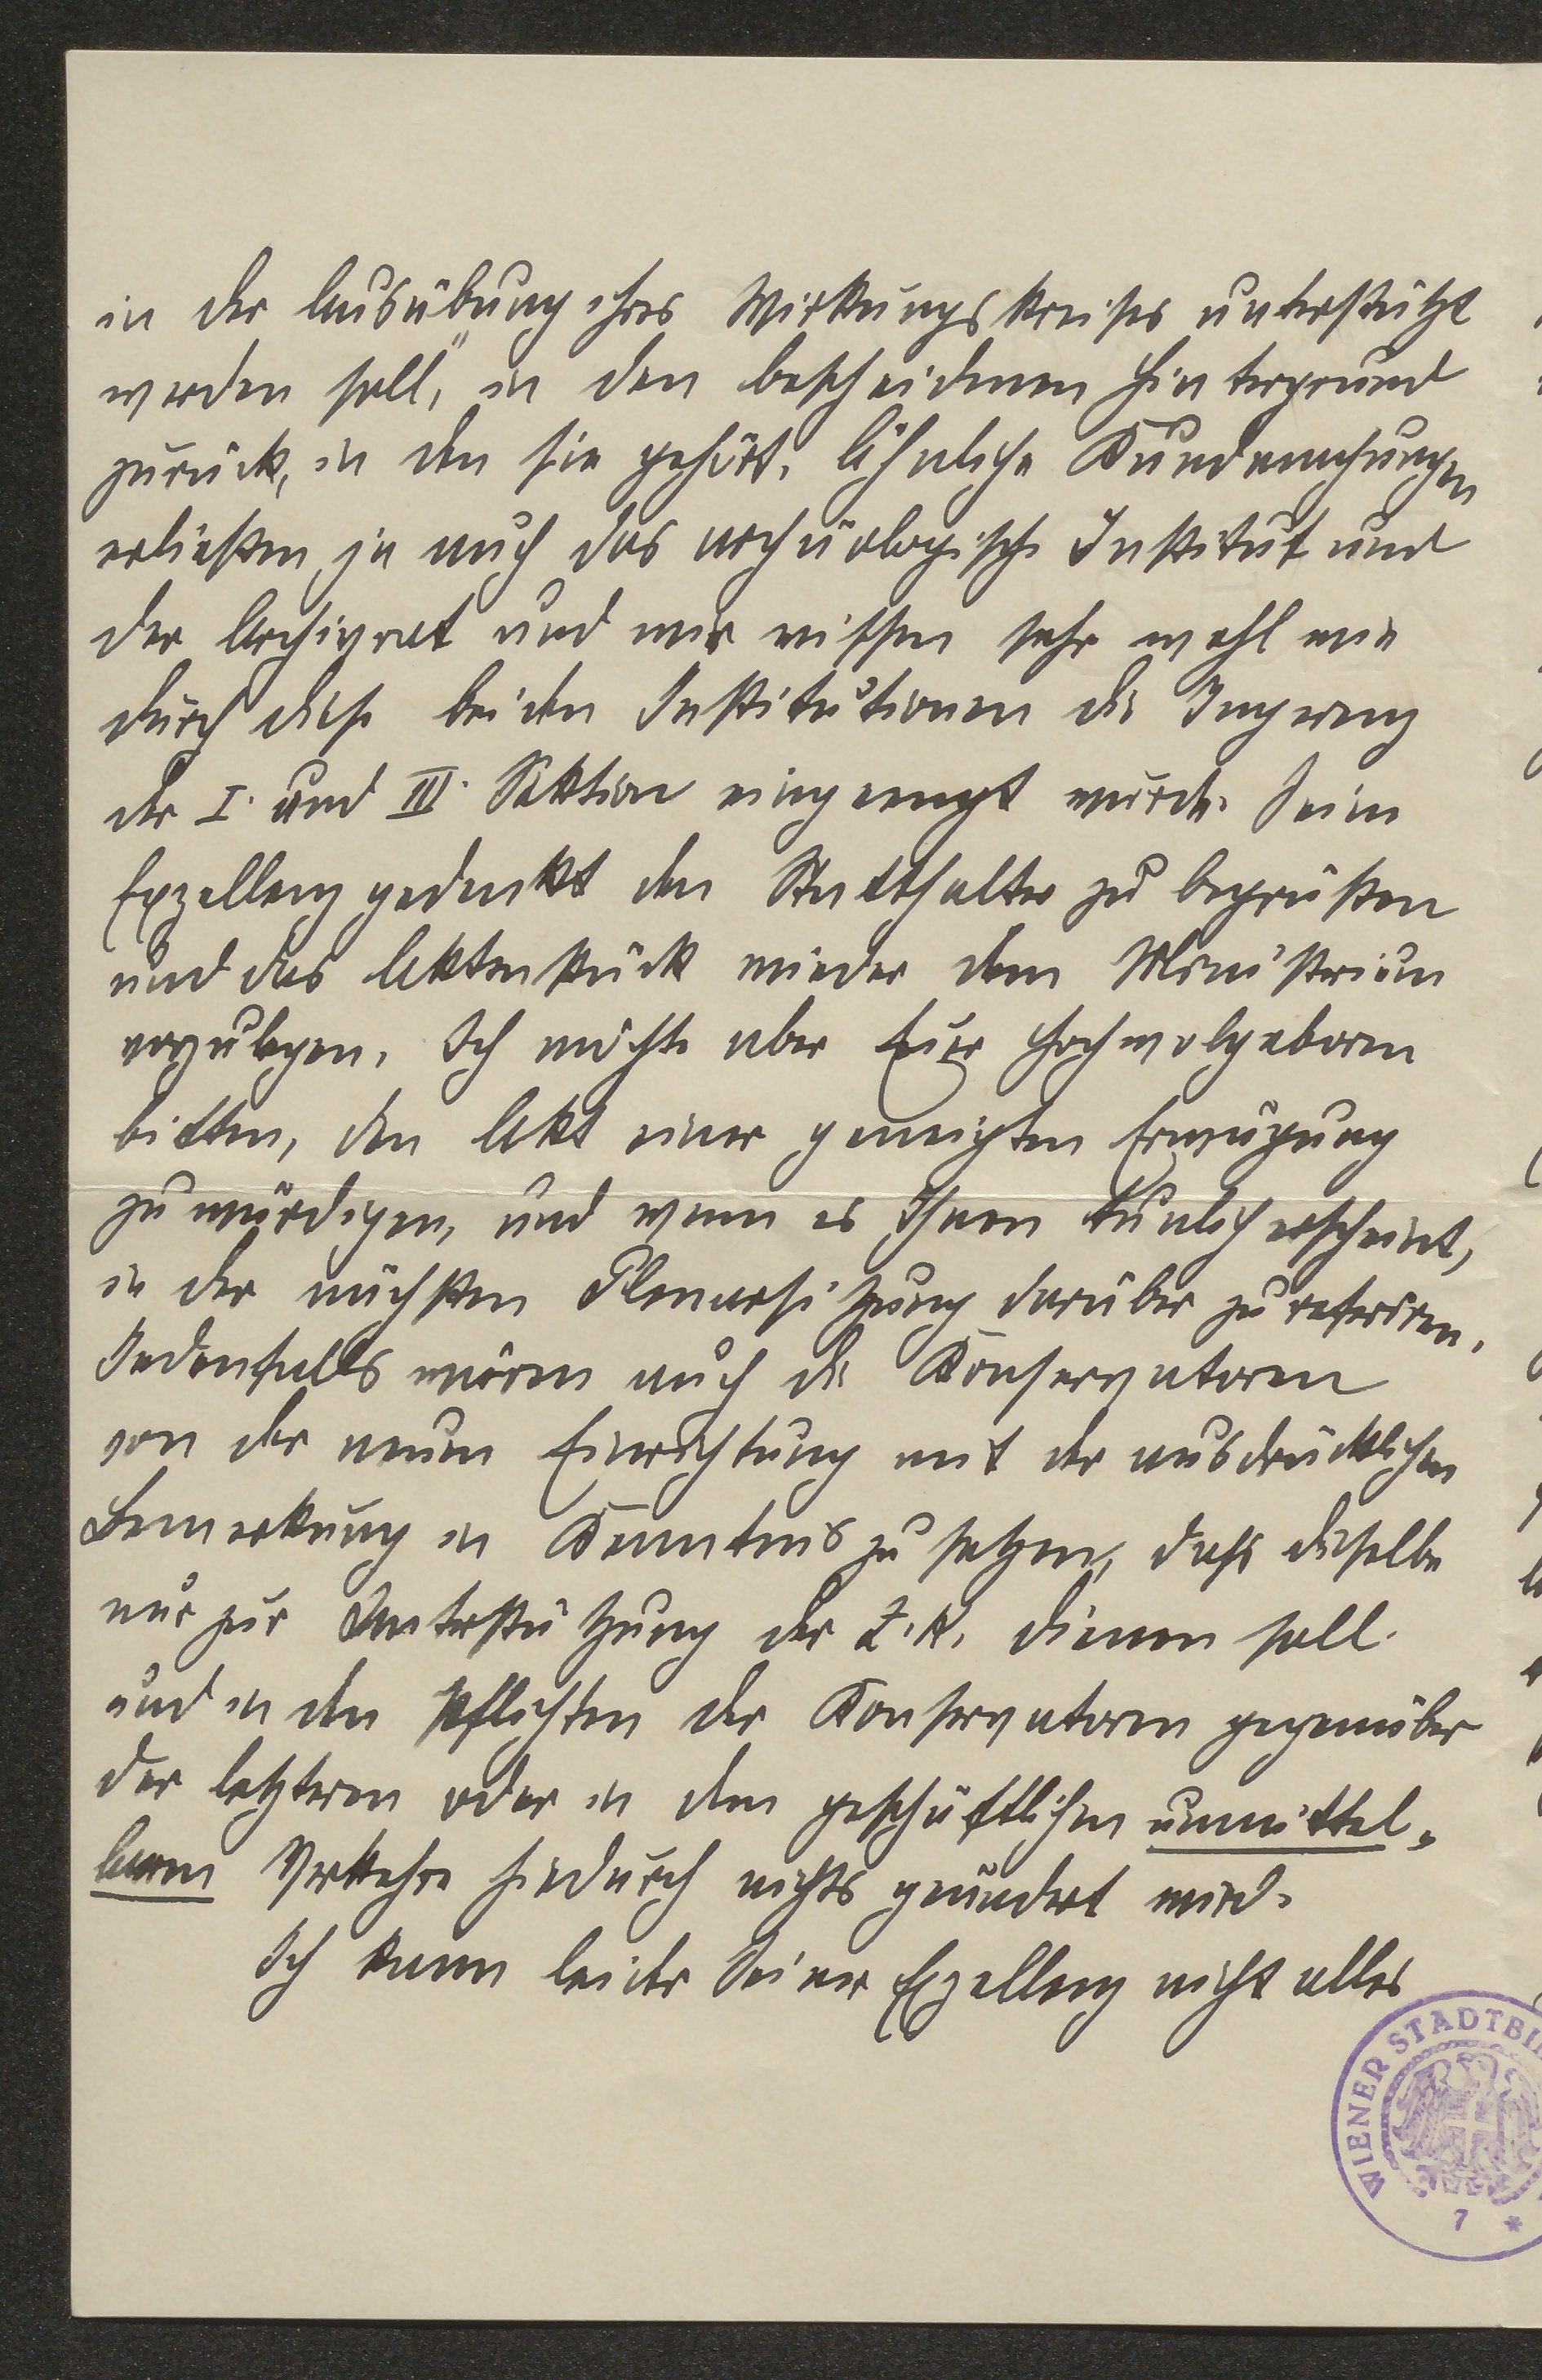 in der Ausübung ihres Wirkungskreises unterstützt
werden soll," in den bescheidenen Hintergrund
zurück, in den sie gehört. Ähnliche Kundmachungen
erließen ja auch das archäologische Institut und
der Archivrat und wir wissen sehr wohl wie
durch diese beiden Institutionen die Ingerenz
der I. und III. Sektion eingeengt wurde. Seine
Exzellenz gedenkt den Statthalter zu begrüßen
und das Aktenstück wieder dem Ministerium
vorzulegen. Ich möchte aber Euer Hochwolgeboren
bitten, den Akt einer geneigten Erwägung
zu würdigen, und wenn es Ihnen tunlich erscheint,
in der nächsten Plenarsitzung darüber zu referiren.
Jedenfalls wären auch die Konservatoren
von der neuen Einrichtung mit der ausdrücklichen
Bemerkung in Kenntnis zu setzen, dass dieselbe
nur zur Unterstützung der Z.K. dienen soll
und in den Pflichten der Konservatoren gegenüber
der letzteren oder in dem geschäftlichen unmittel-
baren Verkehre hiedurch nichts geändert wird.
Ich kann leider Seiner Exzellenz nicht alles
WIENER STADTBI
7 *